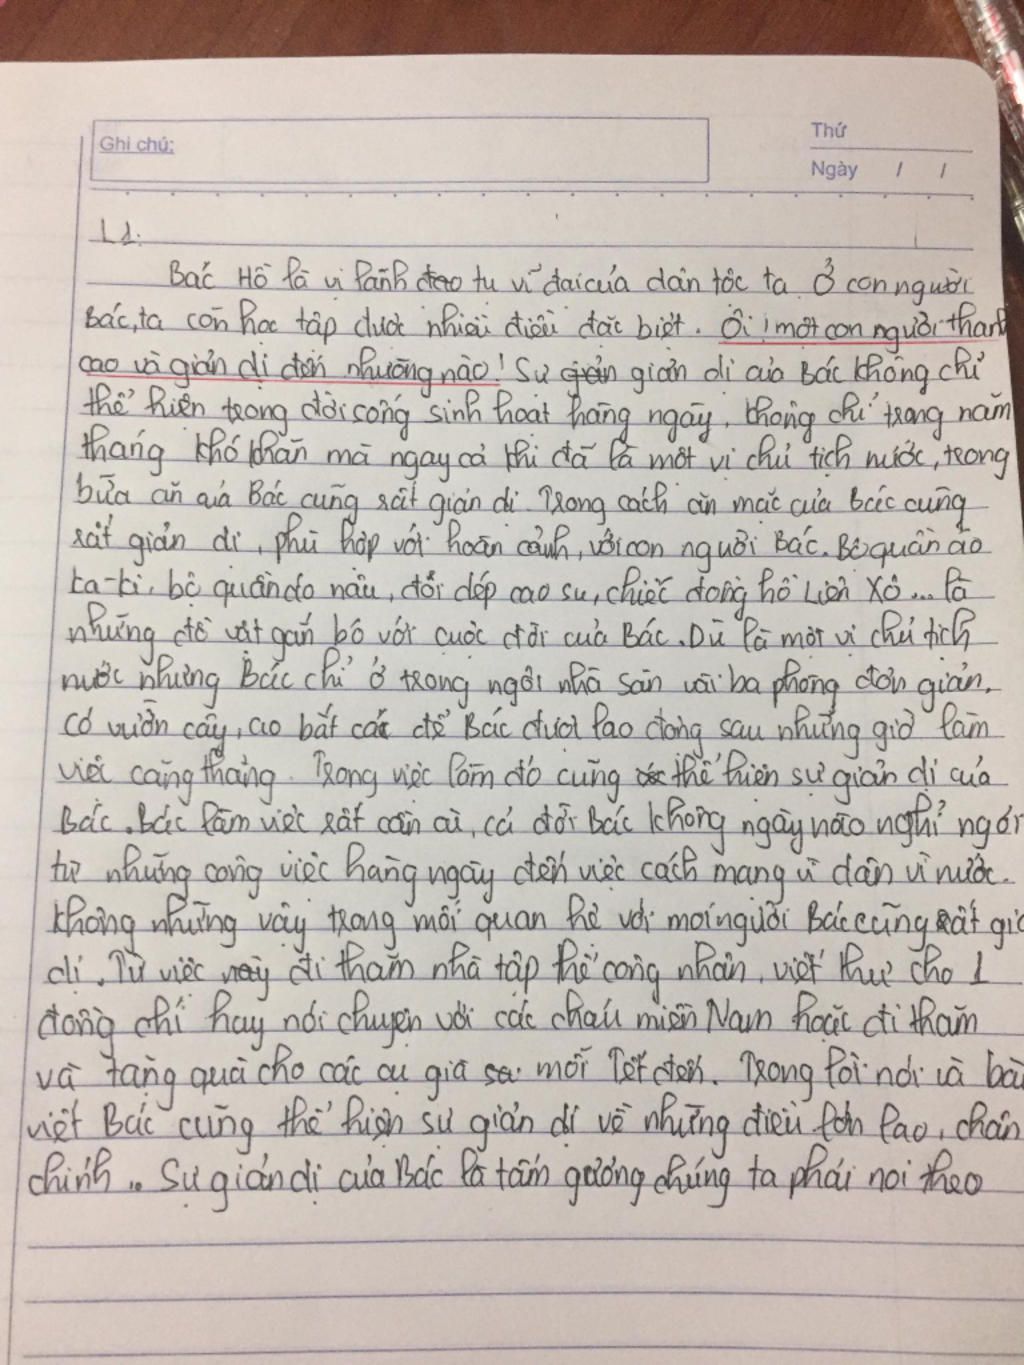 Ghi chú:
Thứ
Ngày / /
L1:
Bác Hồ là vị lãnh đạo tụ vĩ đại của dân tộc ta. Ở con người
Bác, ta còn học tập được nhiều điều đặc biệt. Ôi! một con người thanh
cao và giản dị đến nhường nào! Sự giản giản dị của Bác không chỉ
thể hiện trong đời sống sinh hoạt hằng ngày, không chỉ trong năm
tháng khó khăn mà ngay cả khi đã là một vị chủ tịch nước, trong
bữa ăn của Bác cũng rất giản dị. Trong cách ăn mặc của Bác cũng
rất giản dị, phù hợp với hoàn cảnh, với con người Bác. Bộ quần áo
ka-ki, bộ quần áo nâu, đôi dép cao su, chiếc đồng hồ Liên Xô... là
những đồ vật gắn bó với cuộc đời của Bác. Dù là một vị chủ tịch
nước nhưng Bác chỉ ở trong ngôi nhà sàn vài ba phòng đơn giản.
Có vườn cây, ao bắt cá để Bác được lao động sau những giờ làm
việc căng thẳng. Trong việc làm đó cũng thể hiện sự giản dị của
Bác. Bác làm việc rất cần cù, cả đời Bác không ngày nào nghỉ ngơi
từ những công việc hằng ngày đến việc cách mạng vì dân vì nước.
Không những vậy trong mối quan hệ với mọi người Bác cũng rất giả
dị. Từ việc này đi thăm nhà tập thể công nhân, viết thư cho 1
đồng chí hay nói chuyện với các cháu miền Nam hoặc đi thăm
và tặng quà cho các cụ già mỗi Tết đến. Trong lời nói và bài
viết Bác cũng thể hiện sự giản dị về những điều lớn lao, chân
chính.. Sự giản dị của Bác là tấm gương chúng ta phải noi theo